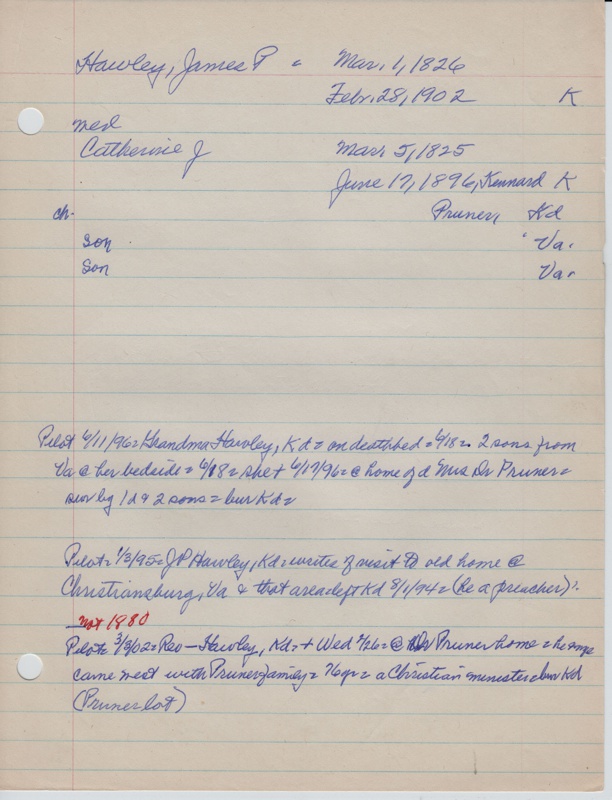 Hawley, James P = Mar. 1, 1826
Febr. 28, 1902 K
med
Catherine J Mar. 5, 1825
June 17, 1896, Kennard K
ch. Pruner, Kd
son Va.
son Va.
Pilot 6/11/96 = Grandma Hawley, Kd = on deathbed = 6/18 = 2 sons from
Va @ her bedside = 6/18 = she + 6/17/96 = @ home of d Mrs Dr Pruner =
surv by 1 d & 2 sons = bur Kd =
Pilot = 1/3/95 = J P Hawley, Kd = writes of visit to old home @
Christiansburg, Va & that area = left Kd 8/1/94 = (he a preacher) =
not 1880
Pilot = 3/5/02 = Rev — Hawley, Kd = + Wed 2/26 = @ Dr Pruner home = he
came west with Pruner family = 76 yr = a Christian minister = bur Kd
(Pruner lot)